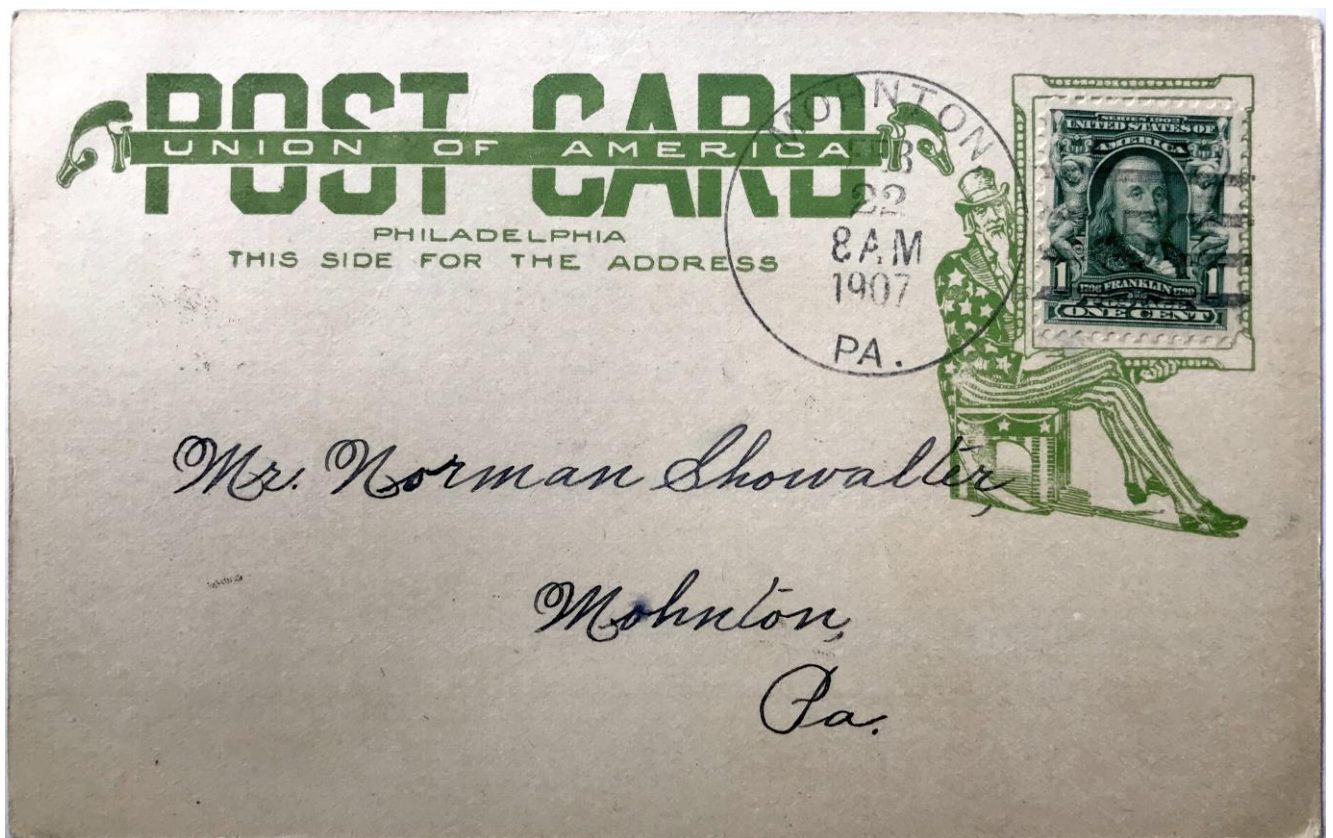 POST CARD
UNION OF AMERICA
PHILADELPHIA
THIS SIDE FOR THE ADDRESS
MOHNTON
FEB
22
8 AM
1907
PA.
SERIES 1902
UNITED STATES OF
AMERICA
1706 FRANKLIN 1790
1 1
POSTAGE
ONE CENT
Mr. Norman Showalter,
Mohnton,
Pa.